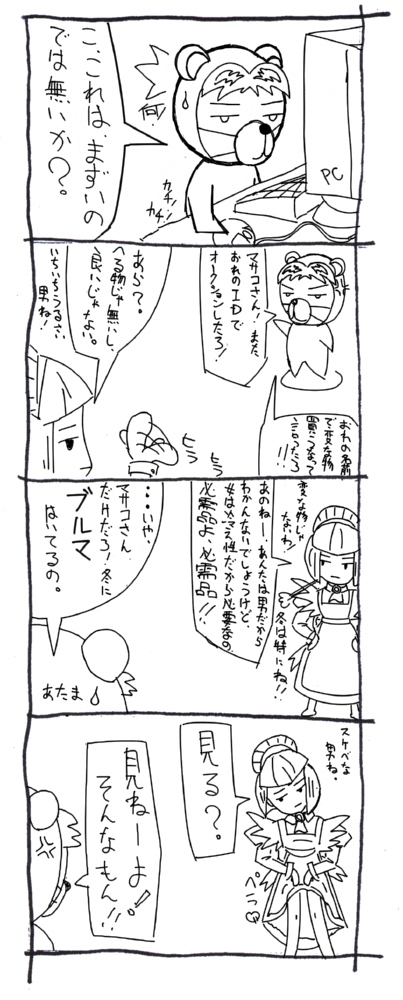 こ、これは、まずいの
では無いか?。
何
カチン
カチン
PC
マサコさん!また
おれのIDで
オークションしたろ!
おれの名前
で変な物
買うなって
言ったろ
!!
あら?。
へる物じゃ無いし、
良いじゃない。
いちいちうるさい
男ね!
ヒラ
ヒラ
変な物じゃ
ないわ!
あのねー、あんたは男だから
わかんないでしょうけど、
女はヒエ性だから必要なの
必需品よ、必需品!!
冬は特にね!!
・・いや、
マサコさん
だけだろ!冬に
ブルマ
はいてるの。
あたま
スケベな
男ね。
見る?。
ペラっ
見ねーよ!
そんなもん!!